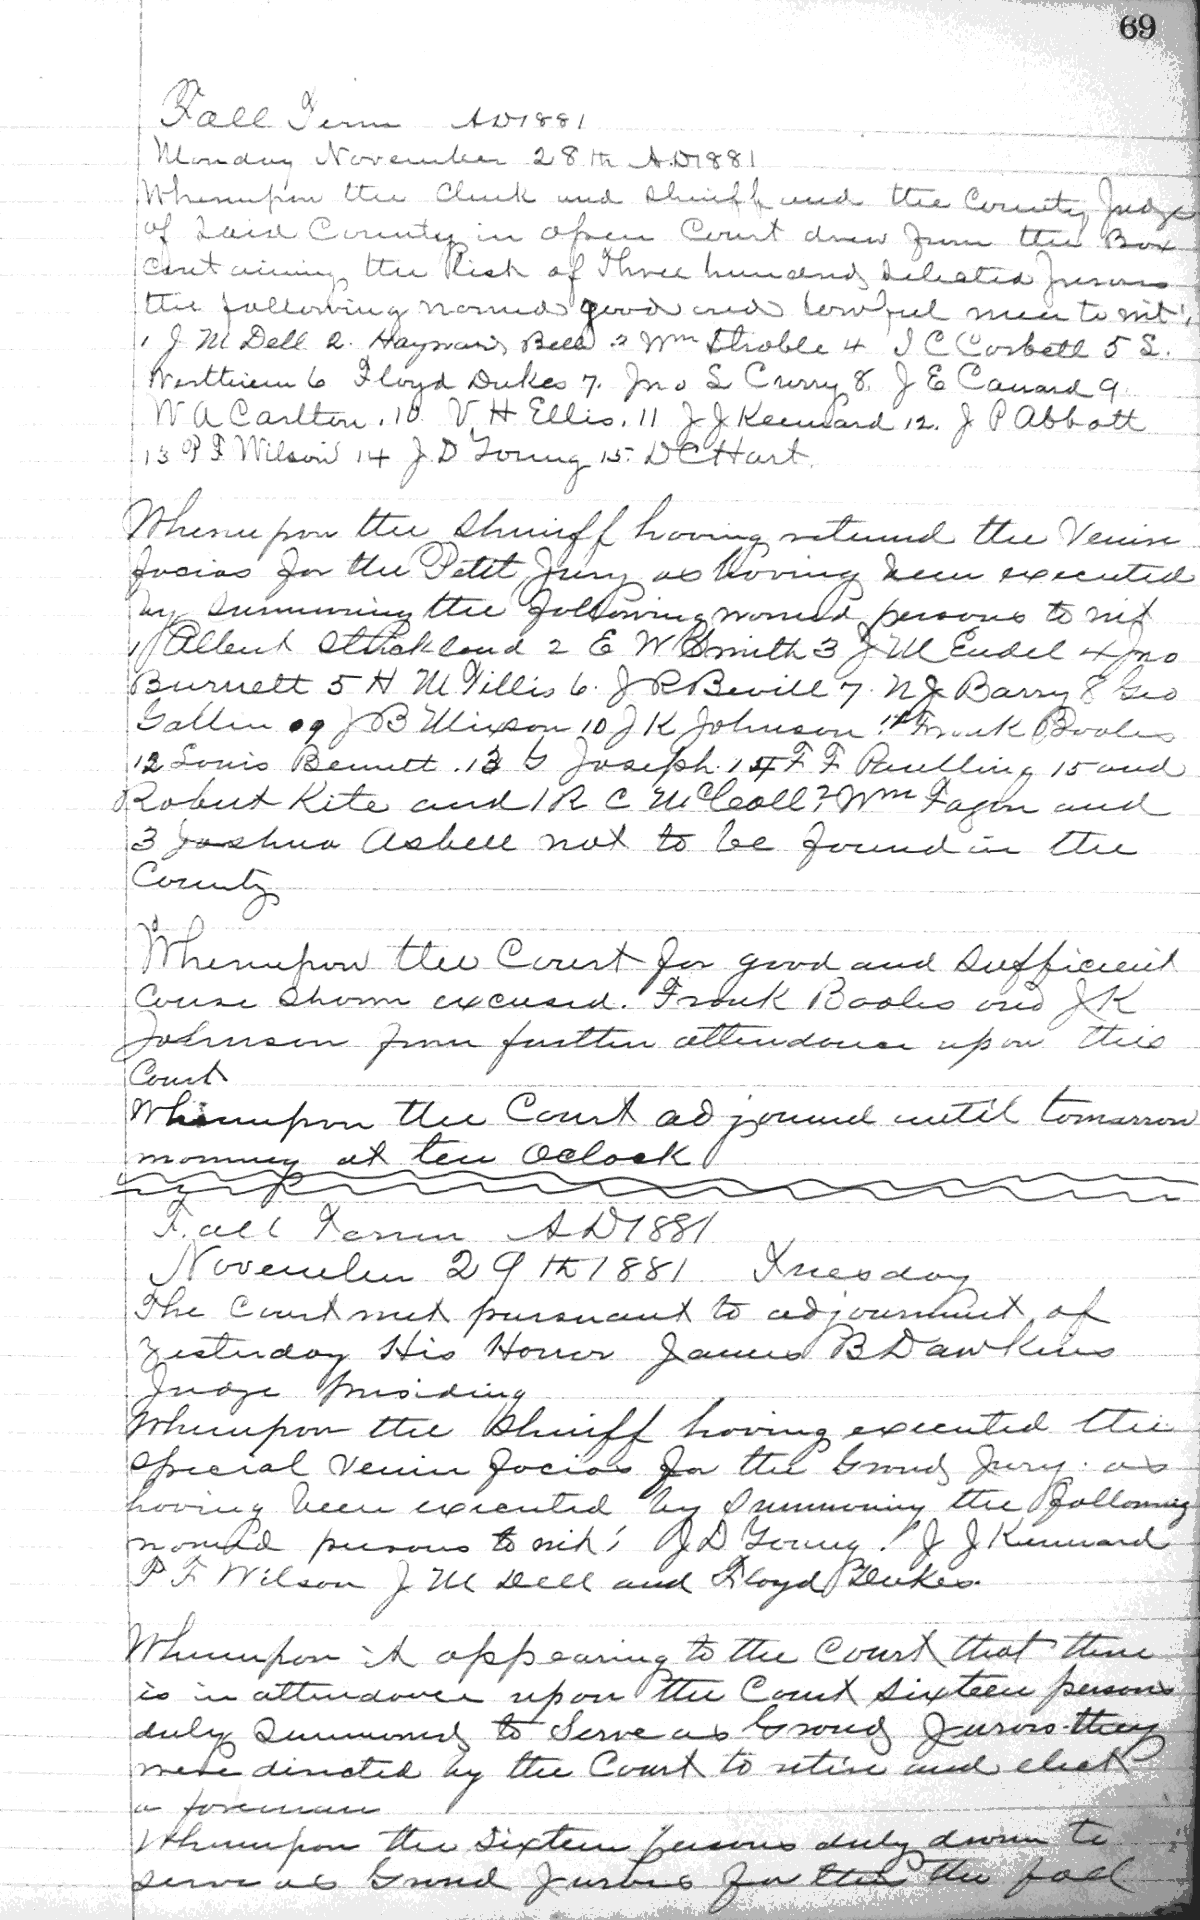 69
Fall Term AD 1881
Monday November 28th AD 1881
Whereupon the Clerk and Sheriff and the County Judge
of Said County in open Court drew from the Box
containing the list of Three hundred Selected Jurors
the following named good and lawful men to wit;
1 J M Dell 2. Hayward Bell 3 Wm Stroble 4 I C Corbett 5 S.
6 Floyd Dukes 7. Jno S Curry 8. J E Cannard 9
W A Carlton. 10 V H Ellis. 11 J J Kennard 12. J P Abbott
13 P F Wilson 14 J D Young 15 D C Hart.
Whereupon the Sheriff having returned the Venire
facias for the Petit Jury as having been executed
by summoning the following named persons to wit
1 Albert Strickland 2 E W Smith 3 J M Endel 4 Jno
Burnett 5 H M Tillis 6. J R Bevill 7. N J Barry 8 Geo
9 J B Mixson 10 J K Johnson 11 Frank Boales
12 Louis Bennett. 13 G Joseph. 14 F F Pnelling 15 and
Robert Kite and 1 R C McCall 2 Wm Fagan and
3 Joshua Asbell not to be found in the
County
Whereupon the Court for good and Sufficient
Cause Shown excused. Frank Boales and J K
Johnson from further attendance upon this
Court
Whereupon the Court adjourned until tomorrow
morning at ten Oclock
Fall Term AD 1881
November 29th 1881 Tuesday
The Court met pursuant to adjournment of
Yesterday His Honor James B Dawkins
Judge Presiding
Whereupon the Sheriff having executed the
Special Venire facias for the Grand Jury. as
having been executed by Summoning the following
named persons to wit; J D Young. J J Kennard
P F Wilson J M Dell and Floyd Dukes.
Whereupon it appearing to the Court that there
is in attendance upon the Court Sixteen persons
duly Summoned to Serve as Grand Jurors they
were directed by the Court to retire and elect
a foreman
Whereupon the Sixteen persons duly drawn to
serve as Grand Jurors for the the fall